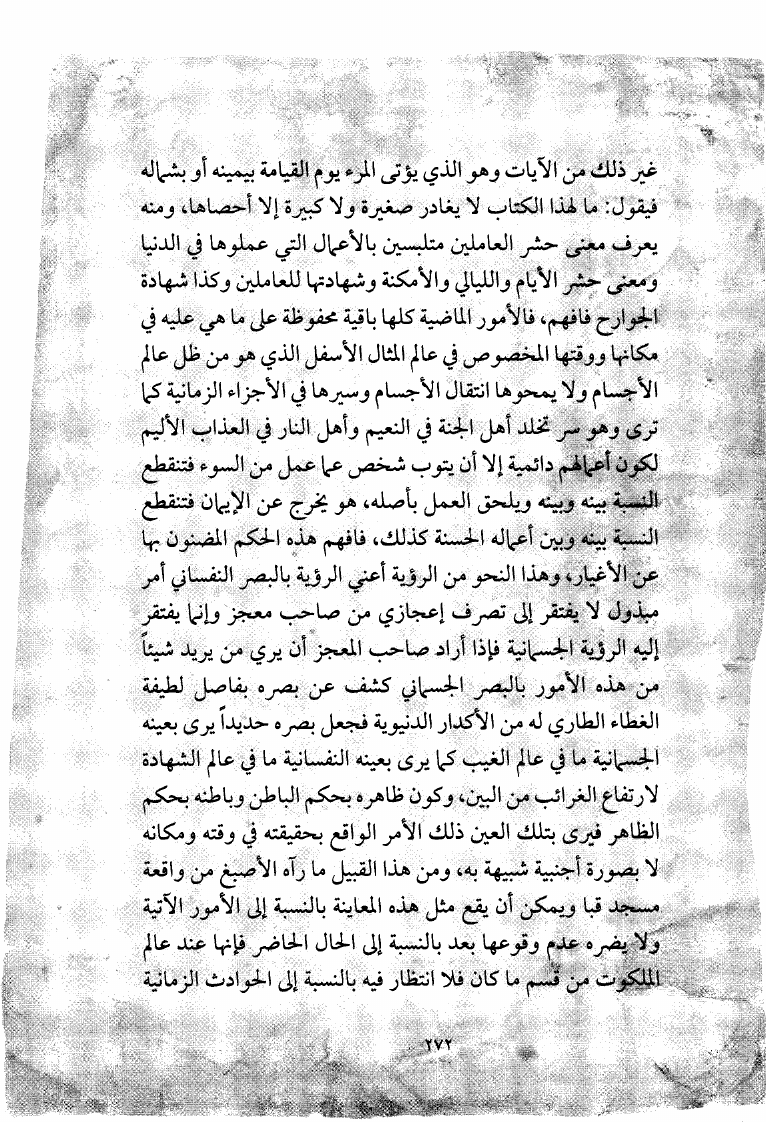 غير ذلك من الآيات وهو الذي يؤتى المرء يوم القيامة بيمينه أو بشماله
فيقول: ما لهذا الكتاب لا يغادر صغيرة ولا كبيرة إلا أحصاها، ومنه
يعرف معنى حشر العاملين متلبسين بالأعمال التي عملوها في الدنيا
ومعنى حشر الأيام والليالي والأمكنة وشهادتها للعاملين وكذا شهادة
الجوارح فافهم، فالأمور الماضية كلها باقية محفوظة على ما هي عليه في
مكانها ووقتها المخصوص في عالم المثال الأسفل الذي هو من ظل عالم
الأجسام ولا يمحوها انتقال الأجسام وسيرها في الأجزاء الزمانية كما
ترى وهو سر تخلد أهل الجنة في النعيم وأهل النار في العذاب الأليم
لكون أعمالهم دائمية إلا أن يتوب شخص عما عمل من السوء فتنقطع
النسبة بينه وبينه ويلحق العمل بأصله، هو يخرج عن الإيمان فتنقطع
النسبة بينه وبين أعماله الحسنة كذلك، فافهم هذه الحكم المضنون بها
عن الأغيار، وهذا النحو من الرؤية أعني الرؤية بالبصر النفساني أمر
مبذول لا يفتقر إلى تصرف إعجازي من صاحب معجز وإنما يفتقر
إليه الرؤية الجسمانية فإذا أراد صاحب المعجز أن يري من يريد شيئاً
من هذه الأمور بالبصر الجسماني كشف عن بصره بفاصل لطيفة
الغطاء الطاري له من الأكدار الدنيوية فجعل بصره حديداً يرى بعينه
الجسمانية ما في عالم الغيب كما يرى بعينه النفسانية ما في عالم الشهادة
لارتفاع الغرائب من البين، وكون ظاهره بحكم الباطن وباطنه بحكم
الظاهر فيرى بتلك العين ذلك الأمر الواقع بحقيقته في وقته ومكانه
لا بصورة أجنبية شبيهة به، ومن هذا القبيل ما رآه الأصبغ من واقعة
مسجد قبا ويمكن أن يقع مثل هذه المعاينة بالنسبة إلى الأمور الآتية
ولا يضره عدم وقوعها بعد بالنسبة إلى الحال الحاضر فإنها عند عالم
الملكوت من قسم ما كان فلا انتظار فيه بالنسبة إلى الحوادث الزمانية
٢٧٢